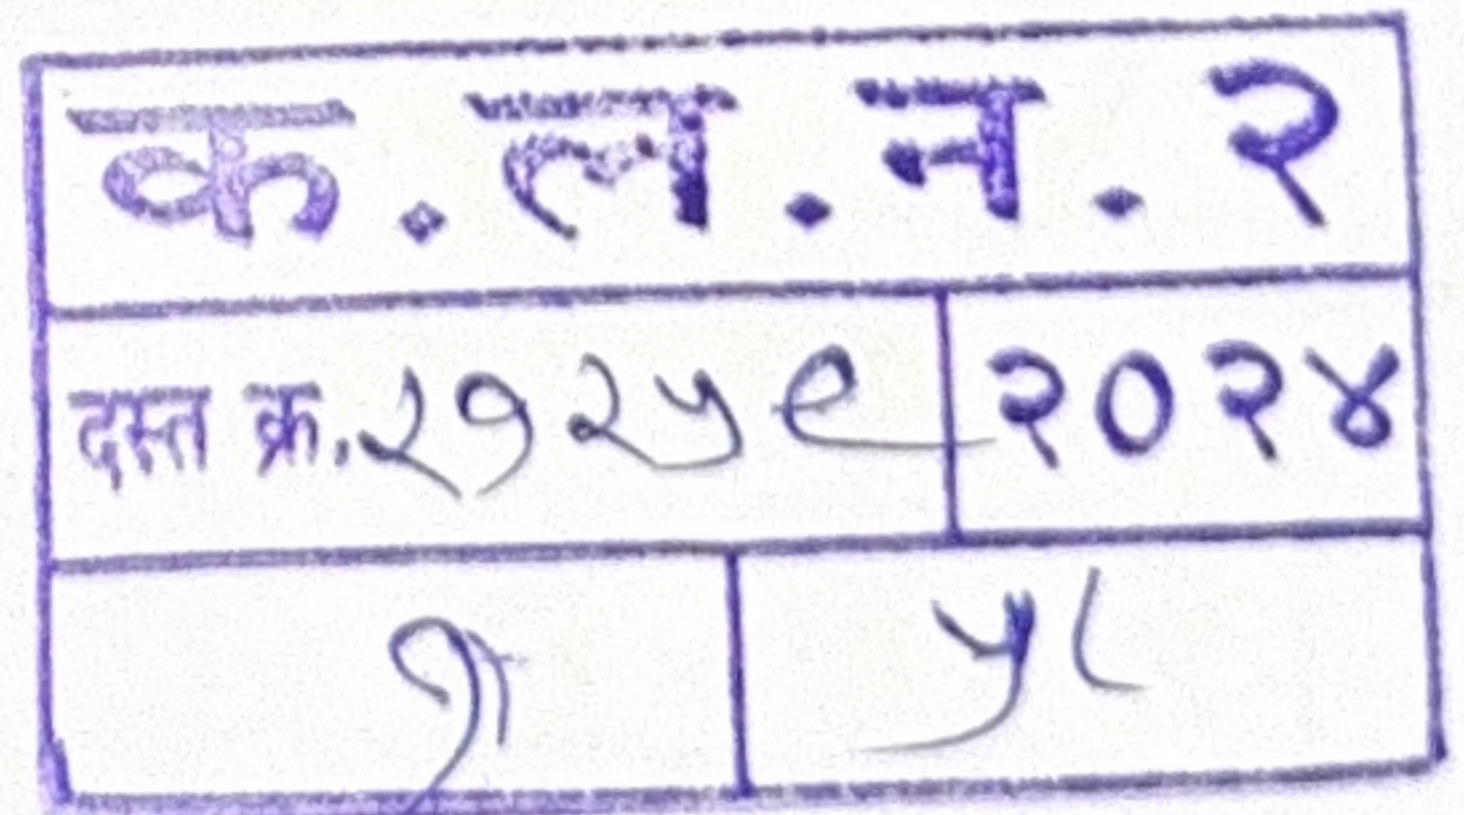 क.ल.न.२
दस्त क्र. २१२५९ २०२४
५८